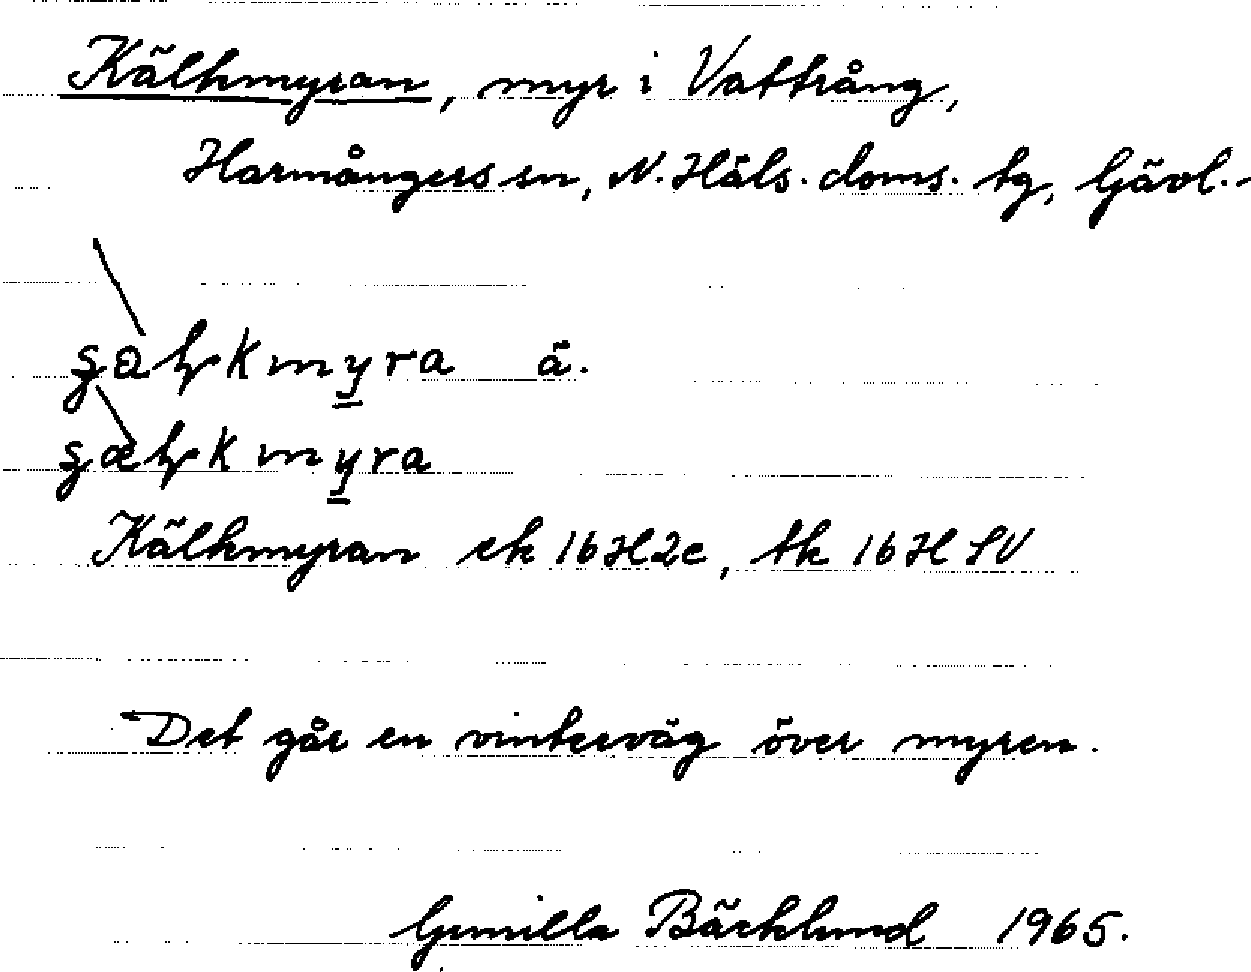 Kälkmyran, myr i Vattrång,
Harmångers sn, N. Häls. doms. tg, Gävl.
kmyra ä.
kmyra
Kälkmyran ek 16H2c, tk 16H SV
Det går en vinterväg över myren.
Gunilla Bäcklund 1965.